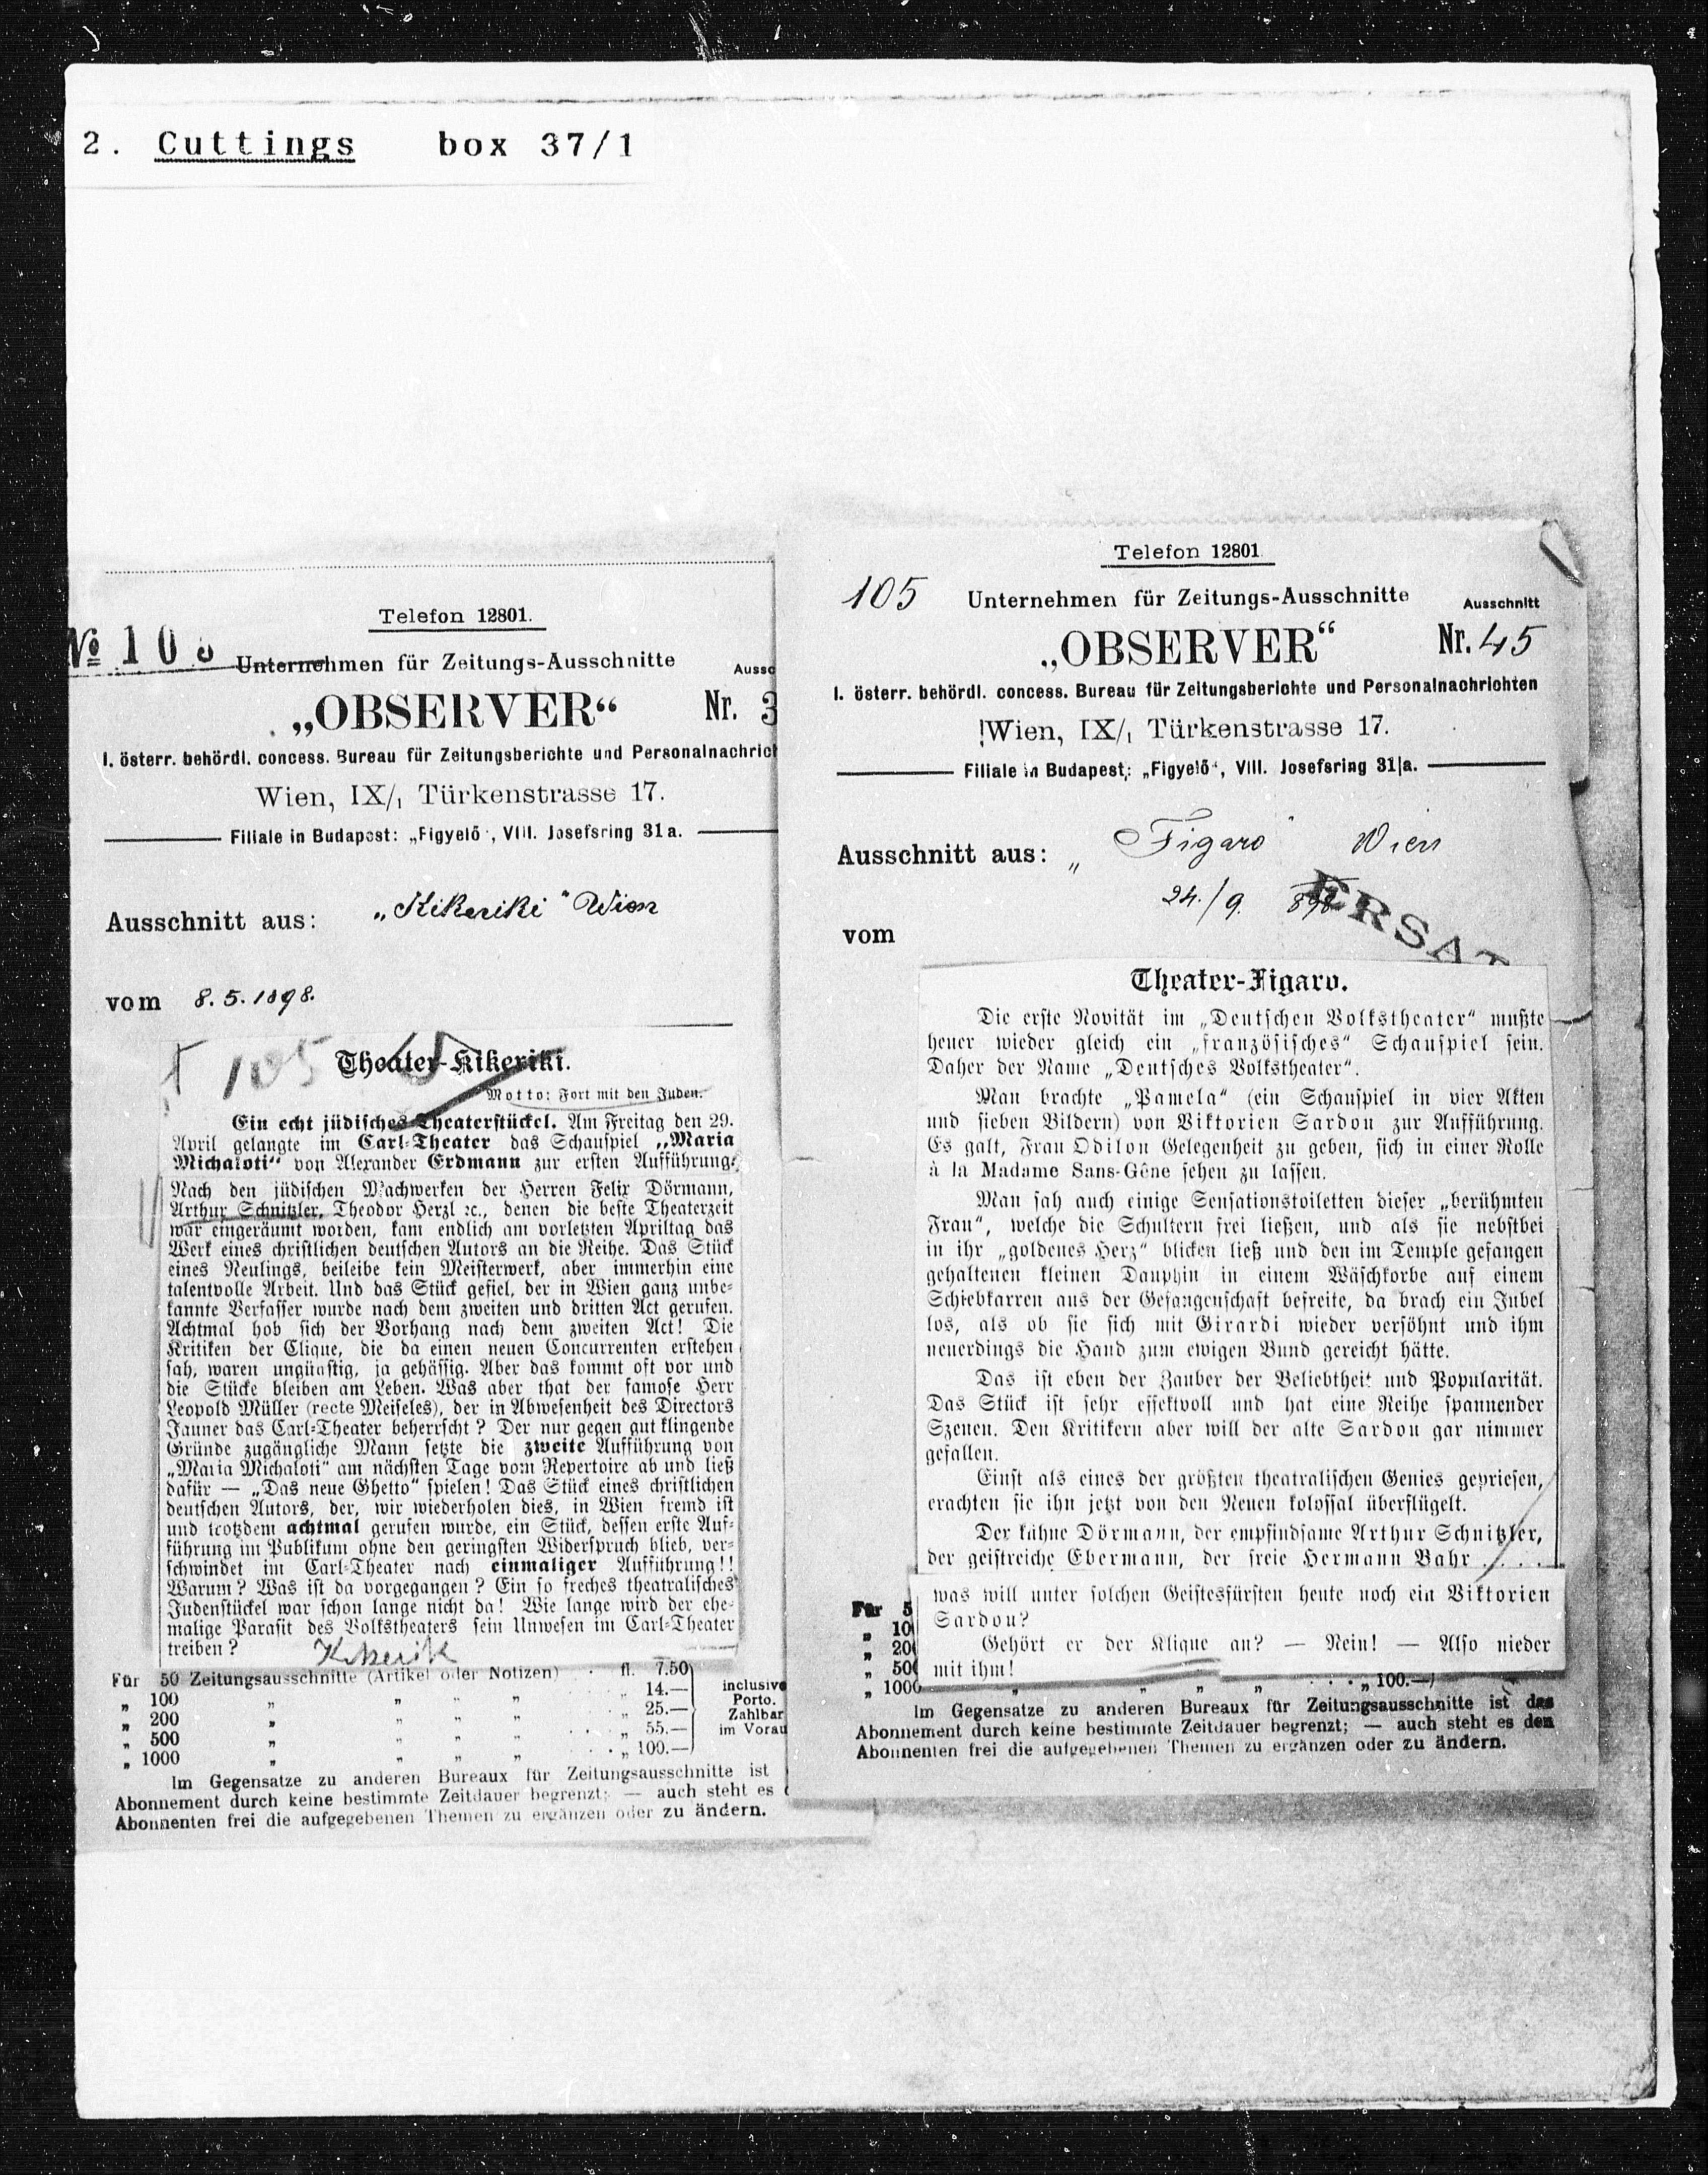 2. Cuttings box 37/1
Telefon 12801.
№ 10
Unternehmen für Zeitungs-Ausschnitte
Aussc
„OBSERVER“
Nr. 3
I. österr. behördl. concess. Bureau für Zeitungsberichte und Personalnachrich
Wien, IX/1 Türkenstrasse 17.
Filiale in Budapest: „Figyelő“, VIII. Josefsring 31a.
Ausschnitt aus: „Kikeriki“ Wien
vom 8. 5. 1898.
105
Theater-Kikeriki.
Motto: Fort mit den Juden.
Ein echt jüdisches Theaterstückel. Am Freitag den 29.
April gelangte im Carl-Theater das Schauspiel „Maria
Michaloti“ von Alexander Erdmann zur ersten Aufführung.
Nach den jüdischen Machwerken der Herren Felix Dörmann,
Arthur Schnitzler, Theodor Herzl ꝛc., denen die beste Theaterzeit
war eingeräumt worden, kam endlich am vorletzten Apriltag das
Werk eines christlichen deutschen Autors an die Reihe. Das Stück
eines Neulings, beileibe kein Meisterwerk, aber immerhin eine
talentvolle Arbeit. Und das Stück gefiel, der in Wien ganz unbe-
kannte Verfasser wurde nach dem zweiten und dritten Act gerufen.
Achtmal hob sich der Vorhang nach dem zweiten Act! Die
Kritiken der Clique, die da einen neuen Concurrenten erstehen
sah, waren ungünstig, ja gehässig. Aber das kommt oft vor und
die Stücke bleiben am Leben. Was aber that der famose Herr
Leopold Müller (recte Meiseles), der in Abwesenheit des Directors
Jauner das Carl-Theater beherrscht? Der nur gegen gut klingende
Gründe zugängliche Mann setzte die zweite Aufführung von
„Maria Michaloti“ am nächsten Tage vom Repertoire ab und ließ
dafür — „Das neue Ghetto“ spielen! Das Stück eines christlichen
deutschen Autors, der, wir wiederholen dies, in Wien fremd ist
und trotzdem achtmal gerufen wurde, ein Stück, dessen erste Auf-
führung im Publikum ohne den geringsten Widerspruch blieb, ver-
schwindet im Carl-Theater nach einmaliger Aufführung!!
Warum? Was ist da vorgegangen? Ein so freches theatralisches
Judenstückel war schon lange nicht da! Wie lange wird der ehe-
malige Parasit des Volkstheaters sein Unwesen im Carl-Theater
treiben?
Für 50 Zeitungsausschnitte (Artikel oder Notizen) . fl. 7.50
„ 100 „ „ „ „ „ 14.—
„ 200 „ „ „ „ „ 25.—
„ 500 „ „ „ „ „ 55.—
„ 1000 „ „ „ „ „ 100.—
inclusive
Porto.
Zahlbar
im Vorau
Im Gegensatze zu anderen Bureaux für Zeitungsausschnitte ist
Abonnement durch keine bestimmte Zeitdauer begrenzt; — auch steht es
Abonnenten frei die aufgegebenen Themen zu ergänzen oder zu ändern.
Telefon 12801
105
Unternehmen für Zeitungs-Ausschnitte
Ausschnitt
„OBSERVER“
Nr. 45
I. österr. behördl. concess. Bureau für Zeitungsberichte und Personalnachrichten
Wien, IX/1 Türkenstrasse 17.
Filiale in Budapest: „Figyelő“, VIII. Josefsring 31|a.
Ausschnitt aus: „Figaro“ Wien
24./9. 898
ERSAT
vom
Theater-Figaro.
Die erste Novität im „Deutschen Volkstheater“ mußte
heuer wieder gleich ein „französisches“ Schauspiel sein.
Daher der Name „Deutsches Volkstheater“.
Man brachte „Pamela“ (ein Schauspiel in vier Akten
und sieben Bildern) von Viktorien Sardou zur Aufführung.
Es galt, Frau Odilon Gelegenheit zu geben, sich in einer Rolle
à la Madame Sans-Gêne sehen zu lassen.
Man sah auch einige Sensationstoiletten dieser „berühmten
Frau“, welche die Schultern frei ließen, und als sie nebstbei
in ihr „goldenes Herz“ blicken ließ und den im Temple gefangen
gehaltenen kleinen Dauphin in einem Wäschkorbe auf einem
Schiebkarren aus der Gefangenschaft befreite, da brach ein Jubel
los, als ob sie sich mit Girardi wieder versöhnt und ihm
neuerdings die Hand zum ewigen Bund gereicht hätte.
Das ist eben der Zauber der Beliebtheit und Popularität.
Das Stück ist sehr effektvoll und hat eine Reihe spannender
Szenen. Den Kritikern aber will der alte Sardou gar nimmer
gefallen.
Einst als eines der größten theatralischen Genies gepriesen,
erachten sie ihn jetzt von den Neuen kolossal überflügelt.
Der kühne Dörmann, der empfindsame Arthur Schnitzler,
der geistreiche Ebermann, der freie Hermann Bahr . . . .
was will unter solchen Geistesfürsten heute noch ein Viktorien
Sardou?
Gehört er der Klique an? — Nein! — Also nieder
mit ihm!
Für 5
„ 10
„ 20
„ 50
„ 1000 „ „ „ „ „ 100.—
Im Gegensatze zu anderen Bureaux für Zeitungsausschnitte ist das
Abonnement durch keine bestimmte Zeitdauer begrenzt; — auch steht es den
Abonnenten frei die aufgegebenen Themen zu ergänzen oder zu ändern.